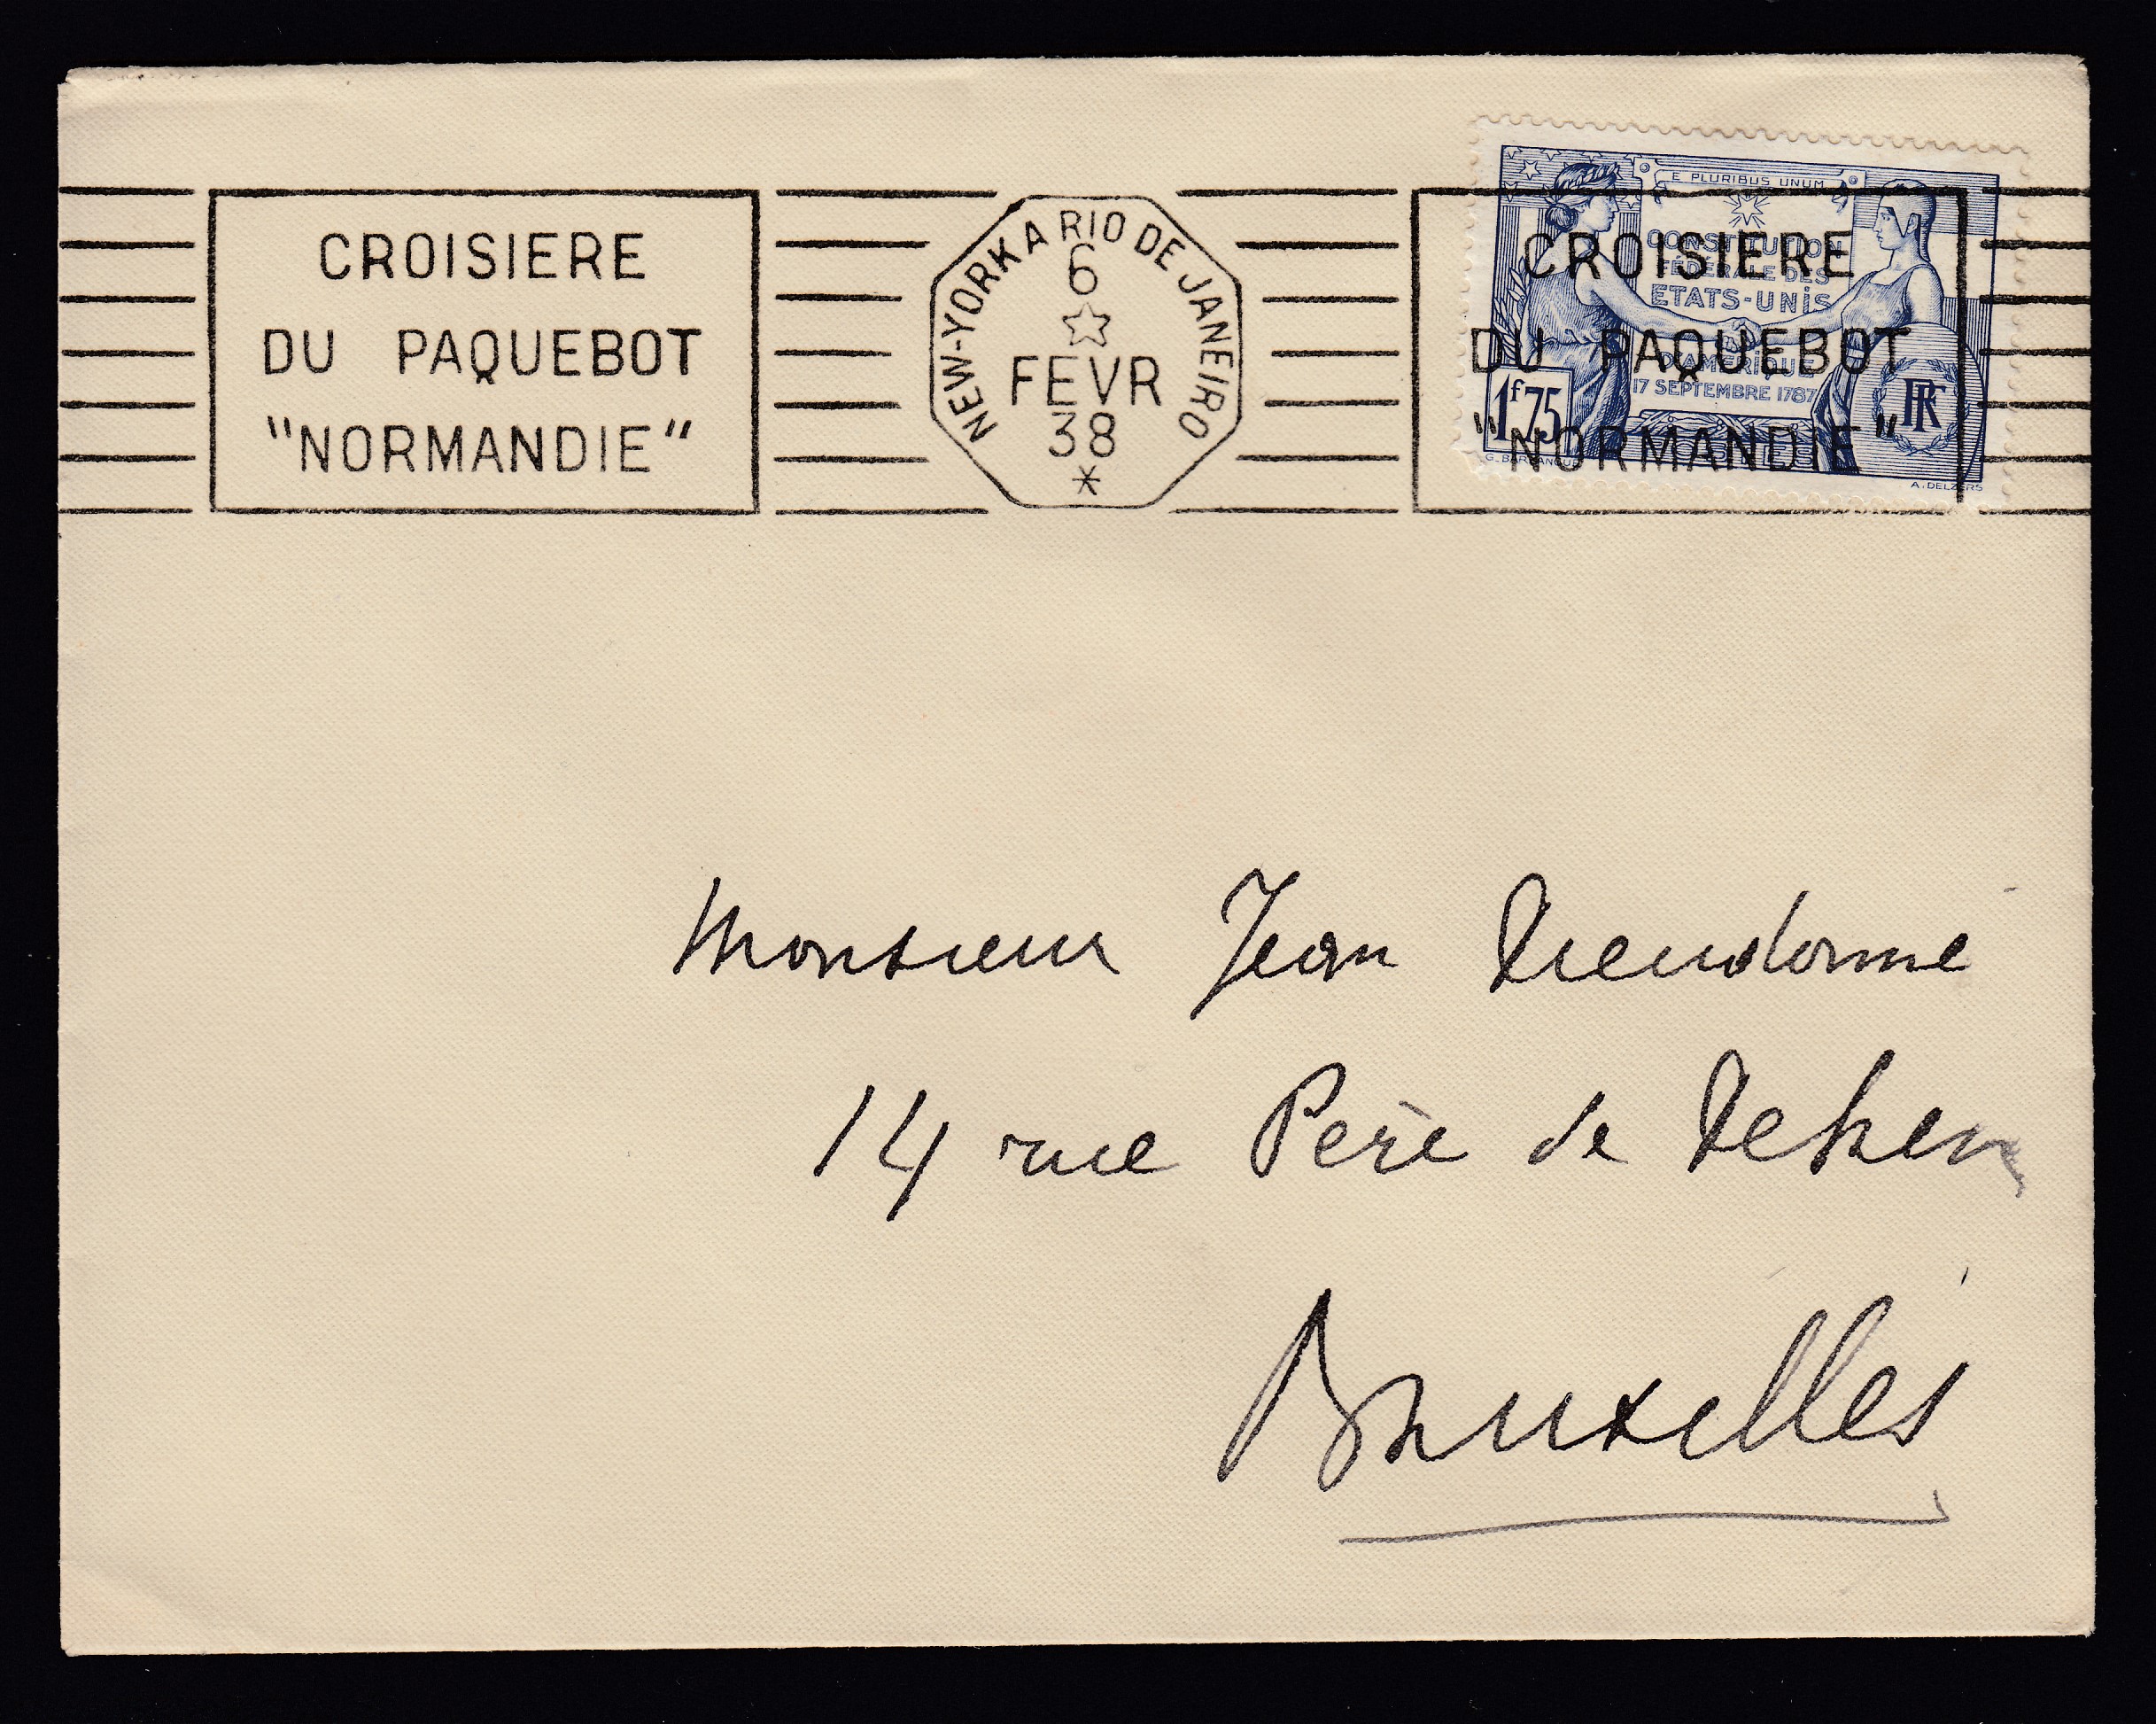 CROISIERE
DU PAQUEBOT
"NORMANDIE"
NEW-YORK A RIO DE JANEIRO
6
FEVR
38
*
CROISIERE
DU PAQUEBOT
"NORMANDIE"
E PLURIBUS UNUM
CONSTITUTION
FÉDÉRALE DES
ETATS-UNIS
D'AMÉRIQUE
17 SEPTEMBRE 1787
1f75
RF
A. DELZERS
Monsieur Jean Dieudonné
14 rue Père de Deken
Bruxelles